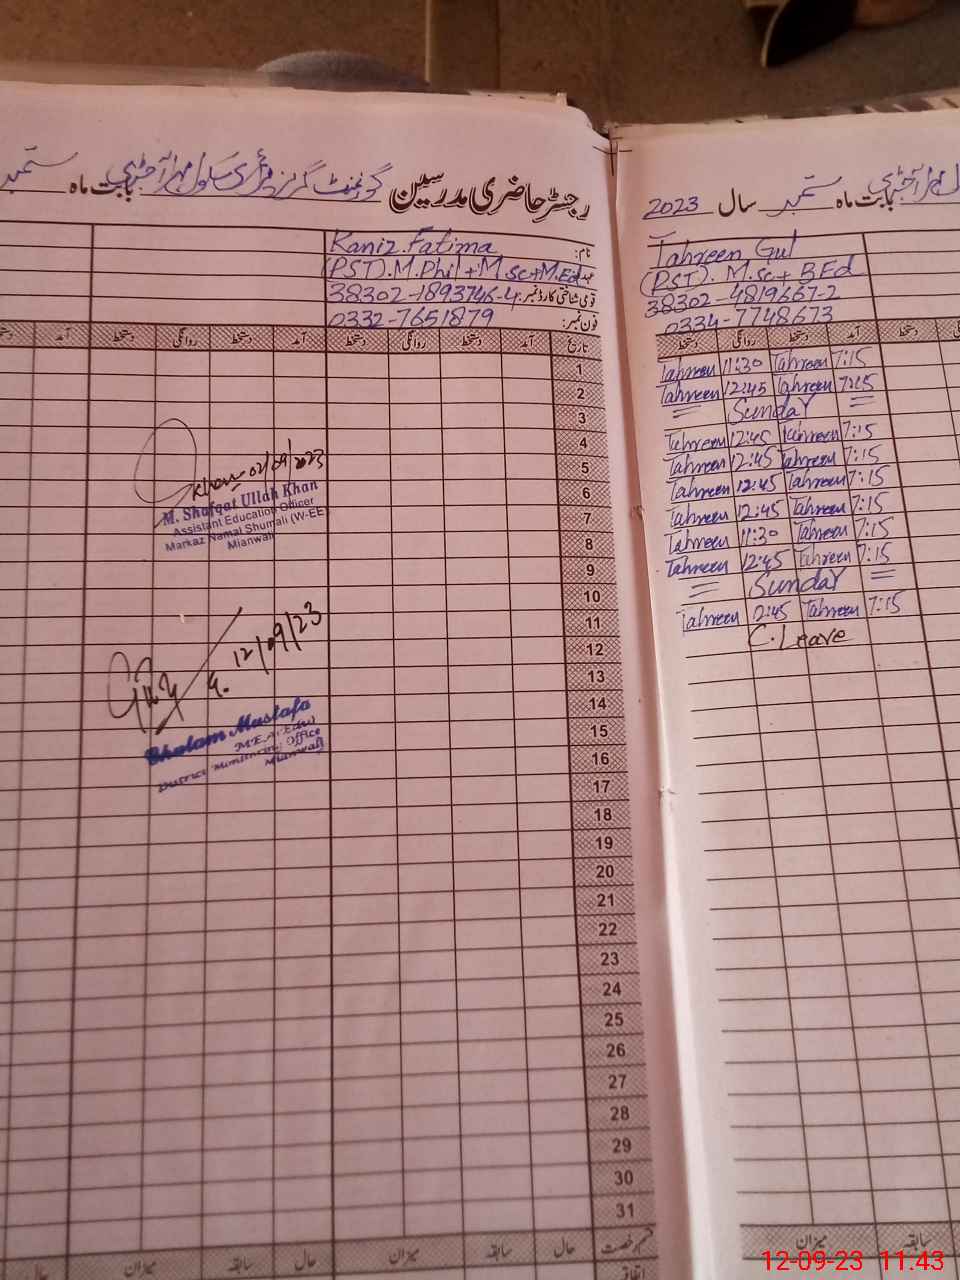 رجسٹر حاضری مدرسین گورنمنٹ گرلز پرائمری سکول بابت ماہ ستمبر
نام: Kaniz Fatima
عہدہ: (PST). M.Phil + M.sc + M.Ed
قومی شناختی کارڈ نمبر: 38302-1893746-4
فون نمبر: 0332-7651879
تاریخ آمد دستخط روانگی دستخط آمد دستخط روانگی دستخط
1
2
3
4
5
6
7
8
9
10
11
12
13
14
15
16
17
18
19
20
21
22
23
24
25
26
27
28
29
30
31
قسم رخصت حال سابقہ میزان حال سابقہ میزان
اتفاقیہ
Khan 02/09/2023
M. Shafqat Ullah Khan
Assistant Education Officer
Markaz Namal Shumali (W-EE)
Mianwali
12/09/23
Ghulam Mustafa
M.E.A (Edu)
District Monitoring Office
Mianwali
بابت ماہ ستمبر سال 2023
Tahreen Gul
(PST). M.Sc + B.Ed
38302-4819667-2
0334-7748673
آمد دستخط روانگی دستخط
7:15 Tahreen 11:30 Tahreen
7:15 Tahreen 12:45 Tahreen
= Sunday =
7:15 Tahreen 12:45 Tahreen
7:15 Tahreen 12:45 Tahreen
7:15 Tahreen 12:45 Tahreen
7:15 Tahreen 12:45 Tahreen
7:15 Tahreen 11:30 Tahreen
7:15 Tahreen 12:45 Tahreen
= Sunday =
7:15 Tahreen 12:45 Tahreen
C. Leave
سابقہ میزان
12-09-23 11.43